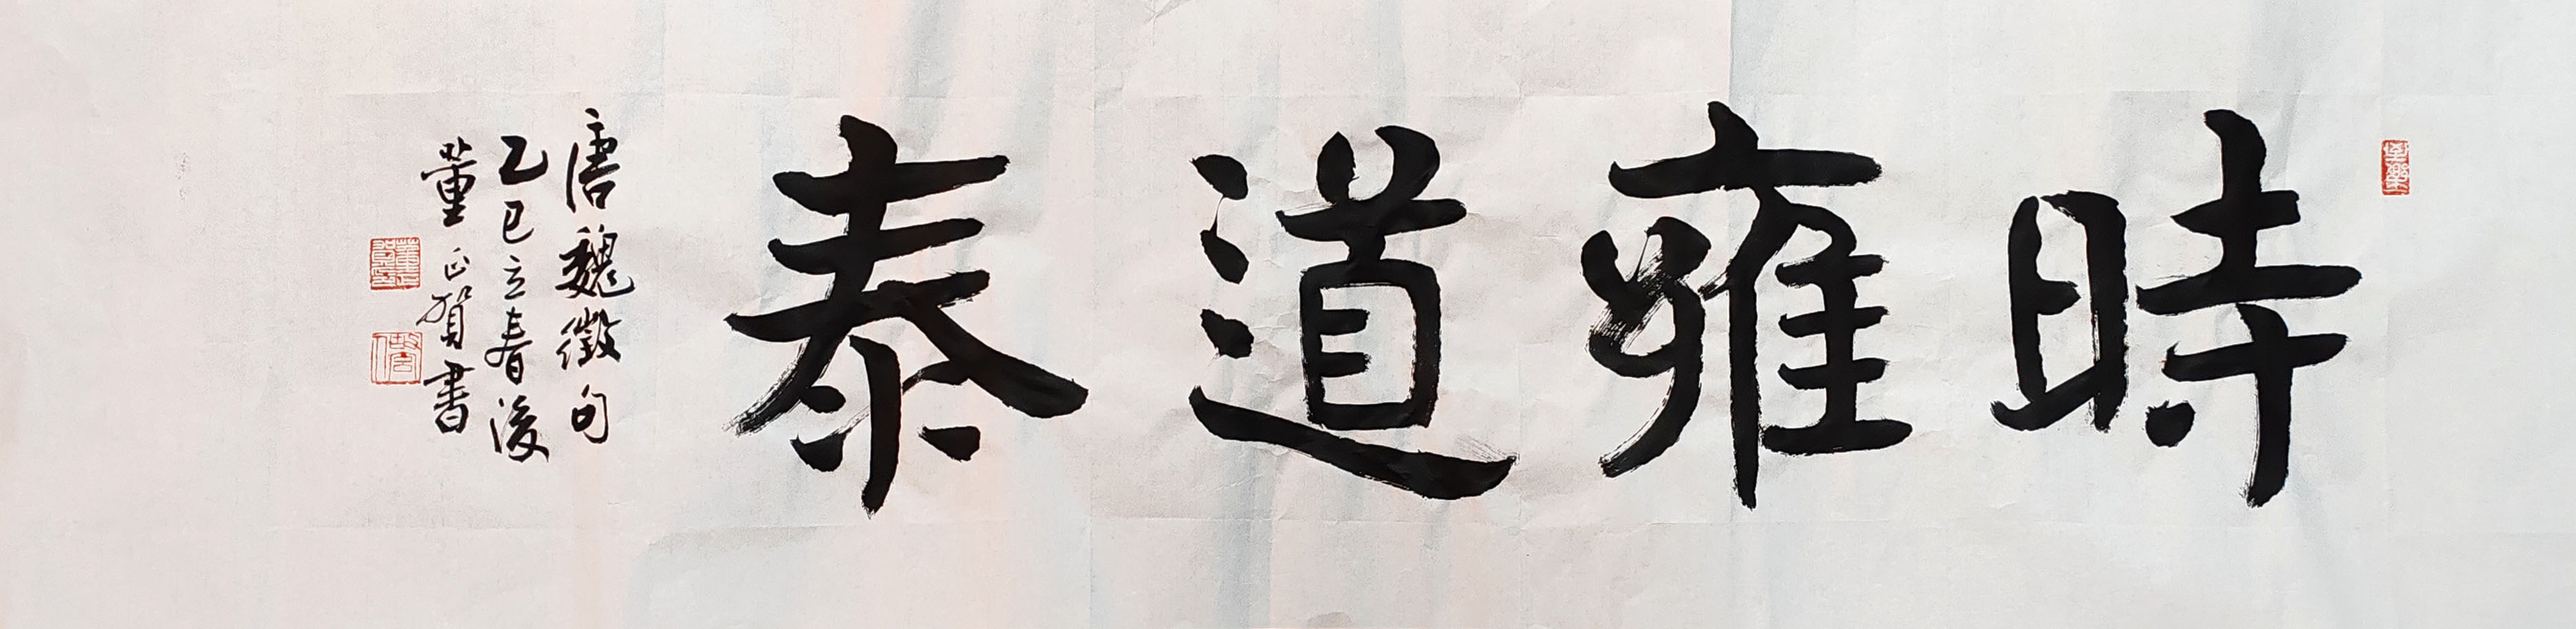 時雍道泰
唐魏徵句
乙巳立春後
董正賀書